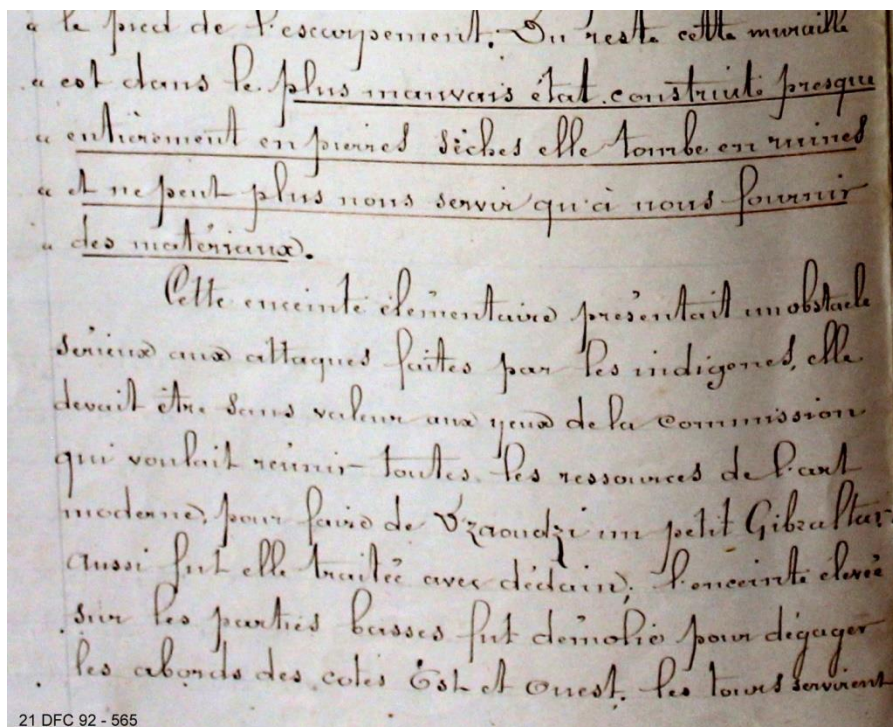 " le pied de l'escarpement. Du reste cette muraille
" est dans le plus mauvais état. construite presque
" entièrement en pierres sèches elle tombe en ruines
" et ne peut plus nous servir qu'à nous fournir
" des matériaux.
Cette enceinte élémentaire présentait un obstacle
sérieux aux attaques faites par les indigènes, elle
devait être sans valeur aux yeux de la commission
qui voulait réunir toutes les ressources de l'art
moderne, pour faire de Dzaoudzi un petit Gibraltar
aussi fut elle traitée avec dédain; l'enceinte elevée
sur les parties basses fut démolie pour dégager
les abords des cotés Est et Ouest. les tours servirent
21 DFC 92 - 565